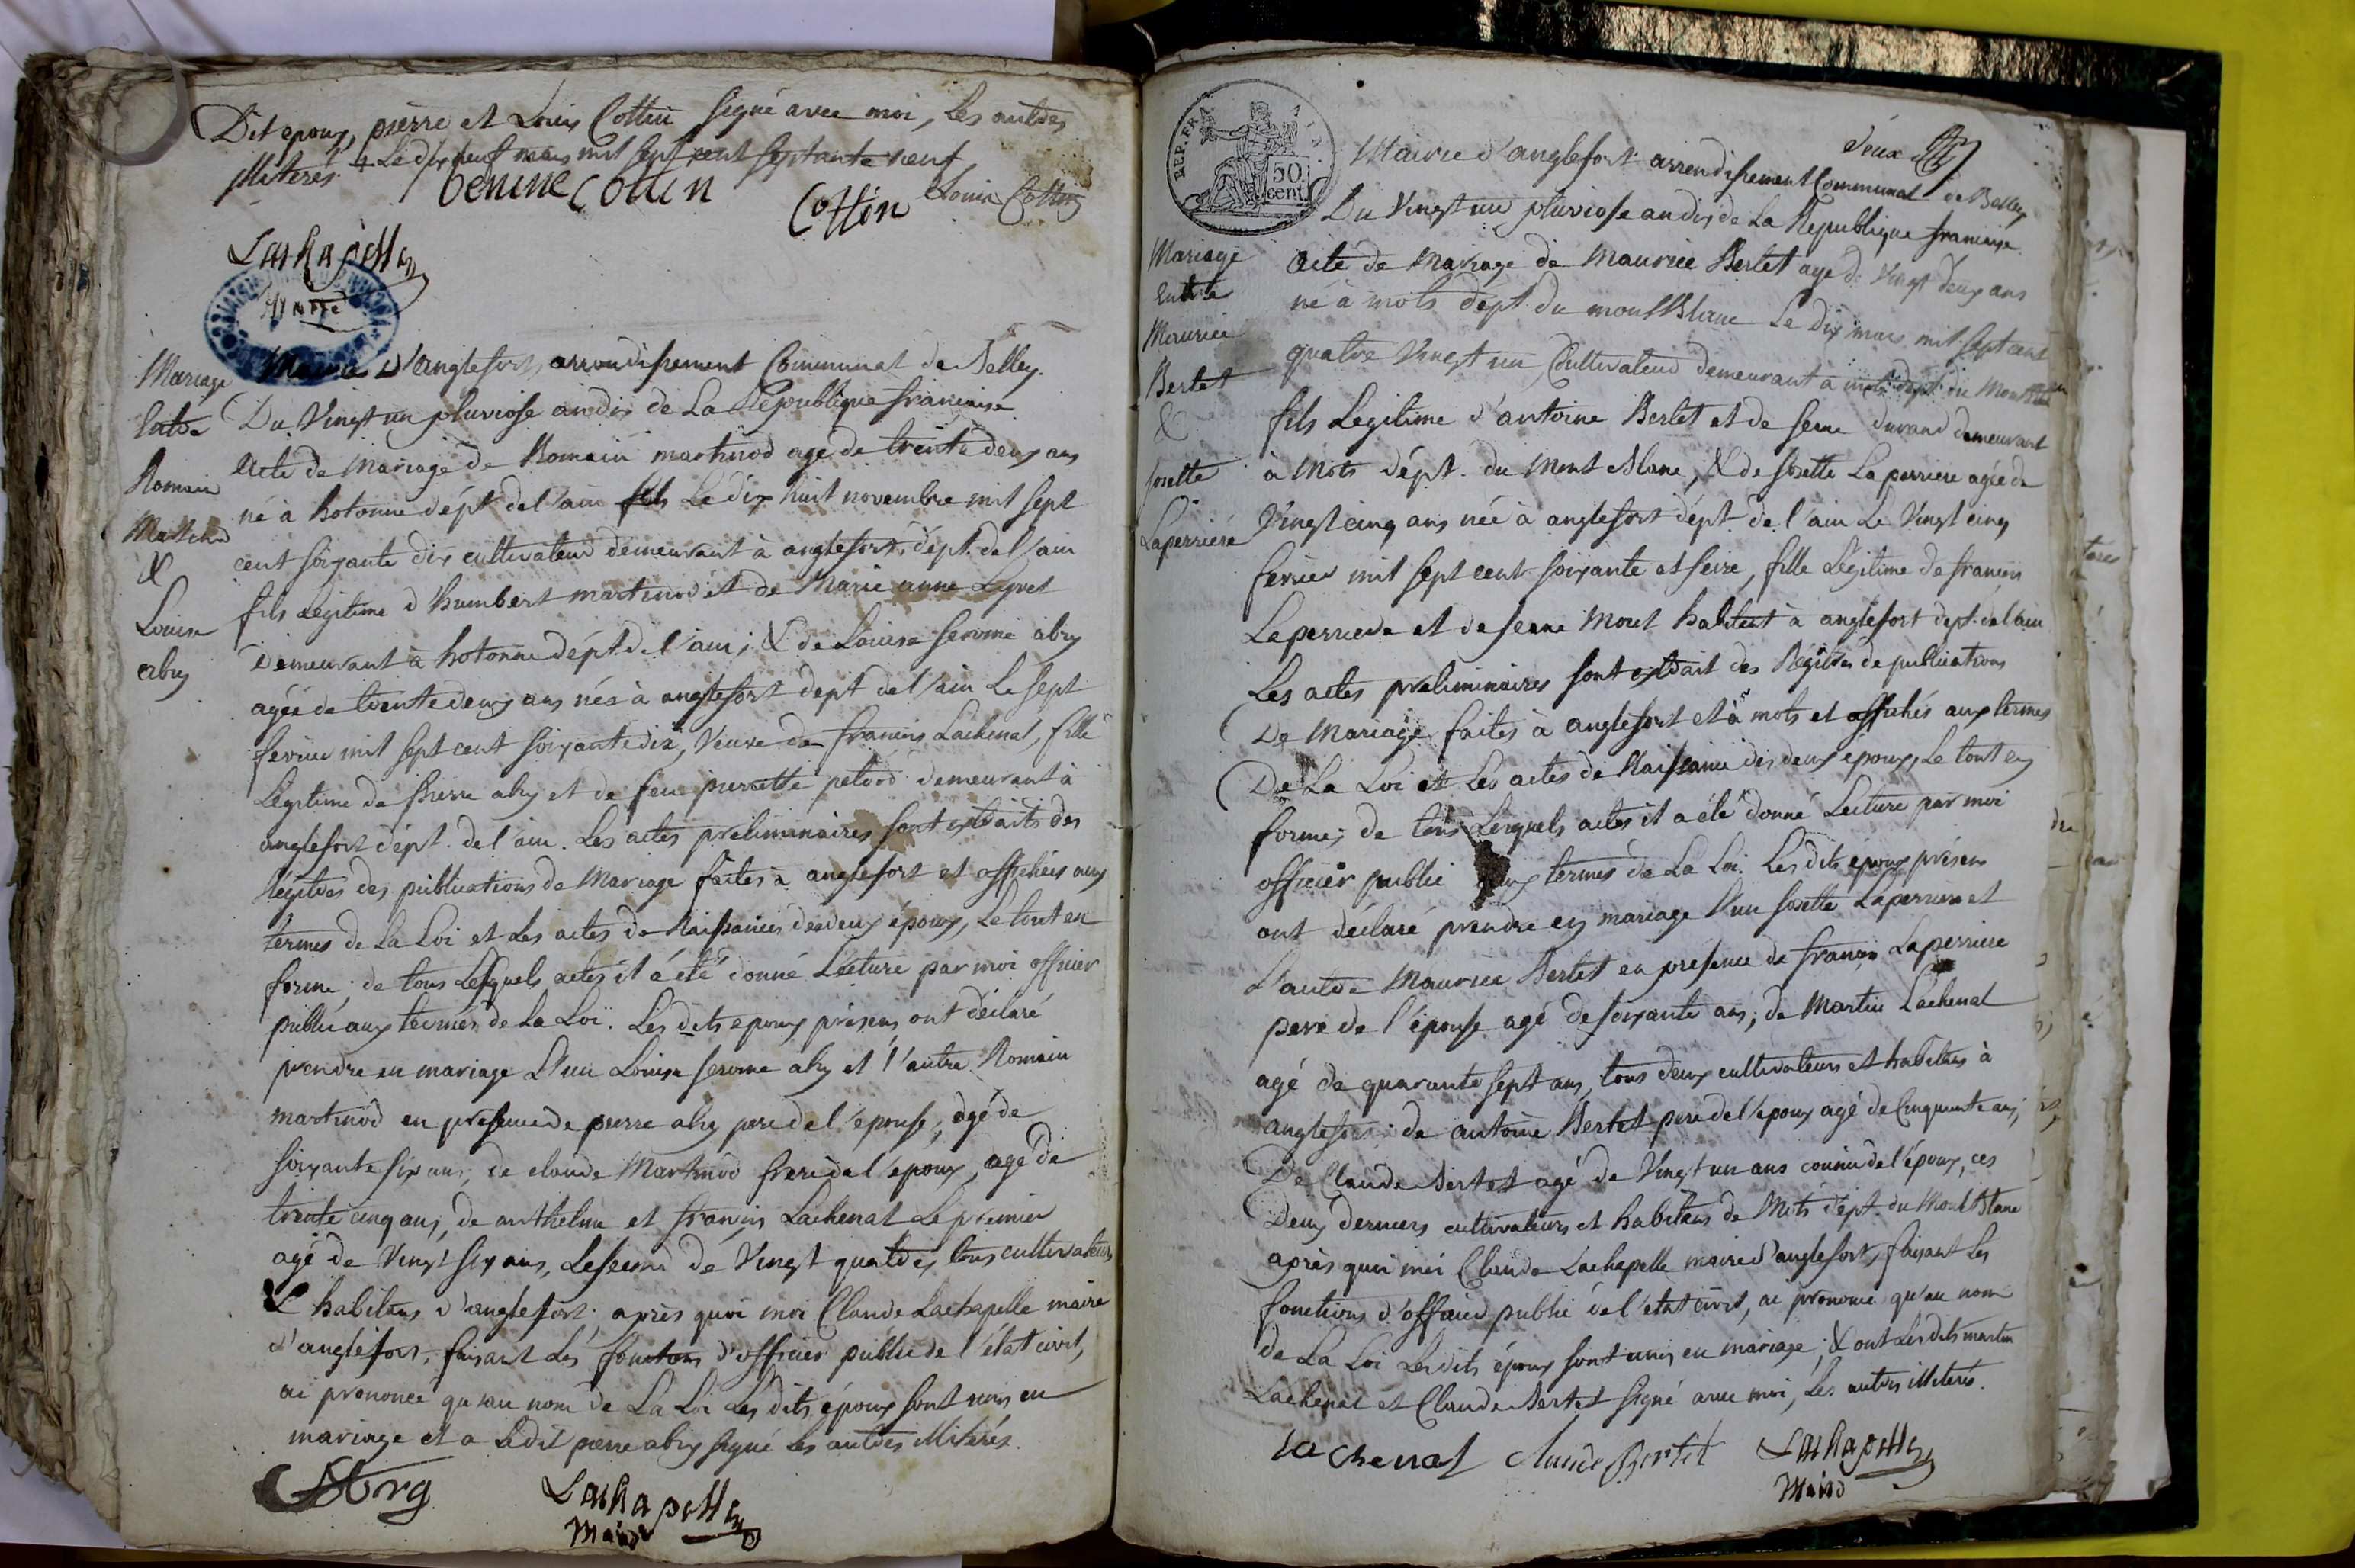 Dit epoux, pierre et Louis Cottin signé avec moi, Les autres
illiterés + Le dix neuf mars mil sept cent septante neuf
Cottin
Cottin
Louis Cottin
Lachapelle
Maire
Mariage
Entre
Romain
Martinod
&
Louise
abry
Mairie d'anglefort, arrondissement Communal de Belley.
Du Vingt un pluviose an dix de La Republique francaise
acte de Mariage de Romain martinod agé de trente deux ans
né à hotonne dépt. de l'ain fils Le dix huit novembre mil sept
cent soixante dix cultivateur demeurant à anglefort, dépt. de l'ain
fils Légitime d'humbert martinod et de Marie anne Lyvet
demeurant à hotonne dépt. de l'ain; & de Louise Jerome abry
agée de trente deux ans née à anglefort dept de l'ain Le sept
fevrier mil sept cent soixante dix, Veuve de francois Lachenal, fille
Légitime de pierre abry et de feu pierrette demeurant à
anglefort dépt. de l'ain. Les actes préliminaires sont extraits des
Régitres des publications de Mariage faites à anglefort et affichés aux
termes de La Loi et Les actes de Naissances des deux époux, Le tout en
forme; de tous Lesquels actes il a été donné Lecture par moi officier
public aux termes de La Loi. Les dits epoux présens ont déclaré
prendre en mariage L'un Louise Jerome abry et l'autre Romain
martinod en présence de pierre abry pere de l'epouse, agé de
soixante six ans, de claude Martinod frere de l'epoux, agé de
trente cinq ans, de anthelme et francois Lachenal Le premier
agé de Vingt six ans, Le second de Vingt quatre, tous cultivateurs
& habitans d'anglefort. après quoi moi Claude Lachapelle maire
d'anglefort, faisant Les fonctions d'officier public de l'état civil,
ai prononcé qu'au nom de La Loi Les dits époux sont unis en
mariage et a Ledit pierre abry signé Les autres illiterés.
Abry
Lachapelle
Maire
deux
REP. FRA.
50
cent.
Mairie d'anglefort arrondissement Communal de Belley
Du Vingt un pluviose an dix de La Republique francaise.
Mariage
Entre
Maurice
Bertet
&
Josette
Laperriere
acte de Mariage de Maurice Bertet agé de Vingt deux ans
né à mots dépt. du mont Blanc Le dix mars mil sept cent
quatre Vingt un Cultivateur demeurant a mots dépt. du Mont Blanc
fils Legitime d'antoine Bertet et de feue durand demeurant
à Mots dépt. du Mont Blanc, & de Josette La perriere agée de
Vingt cinq ans née à anglefort dépt. de l'ain Le Vingt cinq
fevrier mil sept cent soixante et seize, fille Légitime de francois
Laperriere et de Jeanne Mout habitant à anglefort dept. de l'ain
Les actes préliminaires sont extrait des Régitres de publications
De Mariage faites à anglefort et à mots et affichés aux termes
De La Loi et Les actes de Naissance des deux epoux, Le tout en
forme; de tous Lesquels actes il a été donné Lecture par moi
officier public aux termes de La Loi. Les dits epoux présens
ont déclaré prendre en mariage L'un Josette Laperriere et
L'autre Maurice Bertet en présence de francois Laperriere
pere de l'épouse agé de soixante ans, de Martin Lachenal
agé de quarante sept ans, tous deux cultivateurs et habitans à
anglefort; de antoine Bertet pere de l'epoux agé de Cinquante ans,
De Claude Bertet agé de Vingt un ans cousin de l'époux, ces
Deux derniers cultivateurs et habitans de Mots dépt. du Mont Blanc
après quoi moi Claude Lachapelle maire d'anglefort, faisant Les
fonctions d'officier public de l'etat civil, ai prononcé qu'au nom
de La Loi Les dits époux sont unis en mariage; & ont Les dits martin
Lachenal et Claude Bertet signé avec moi, Les autres illiterés.
lachenal Claude Bertet Lachapelle
Maire